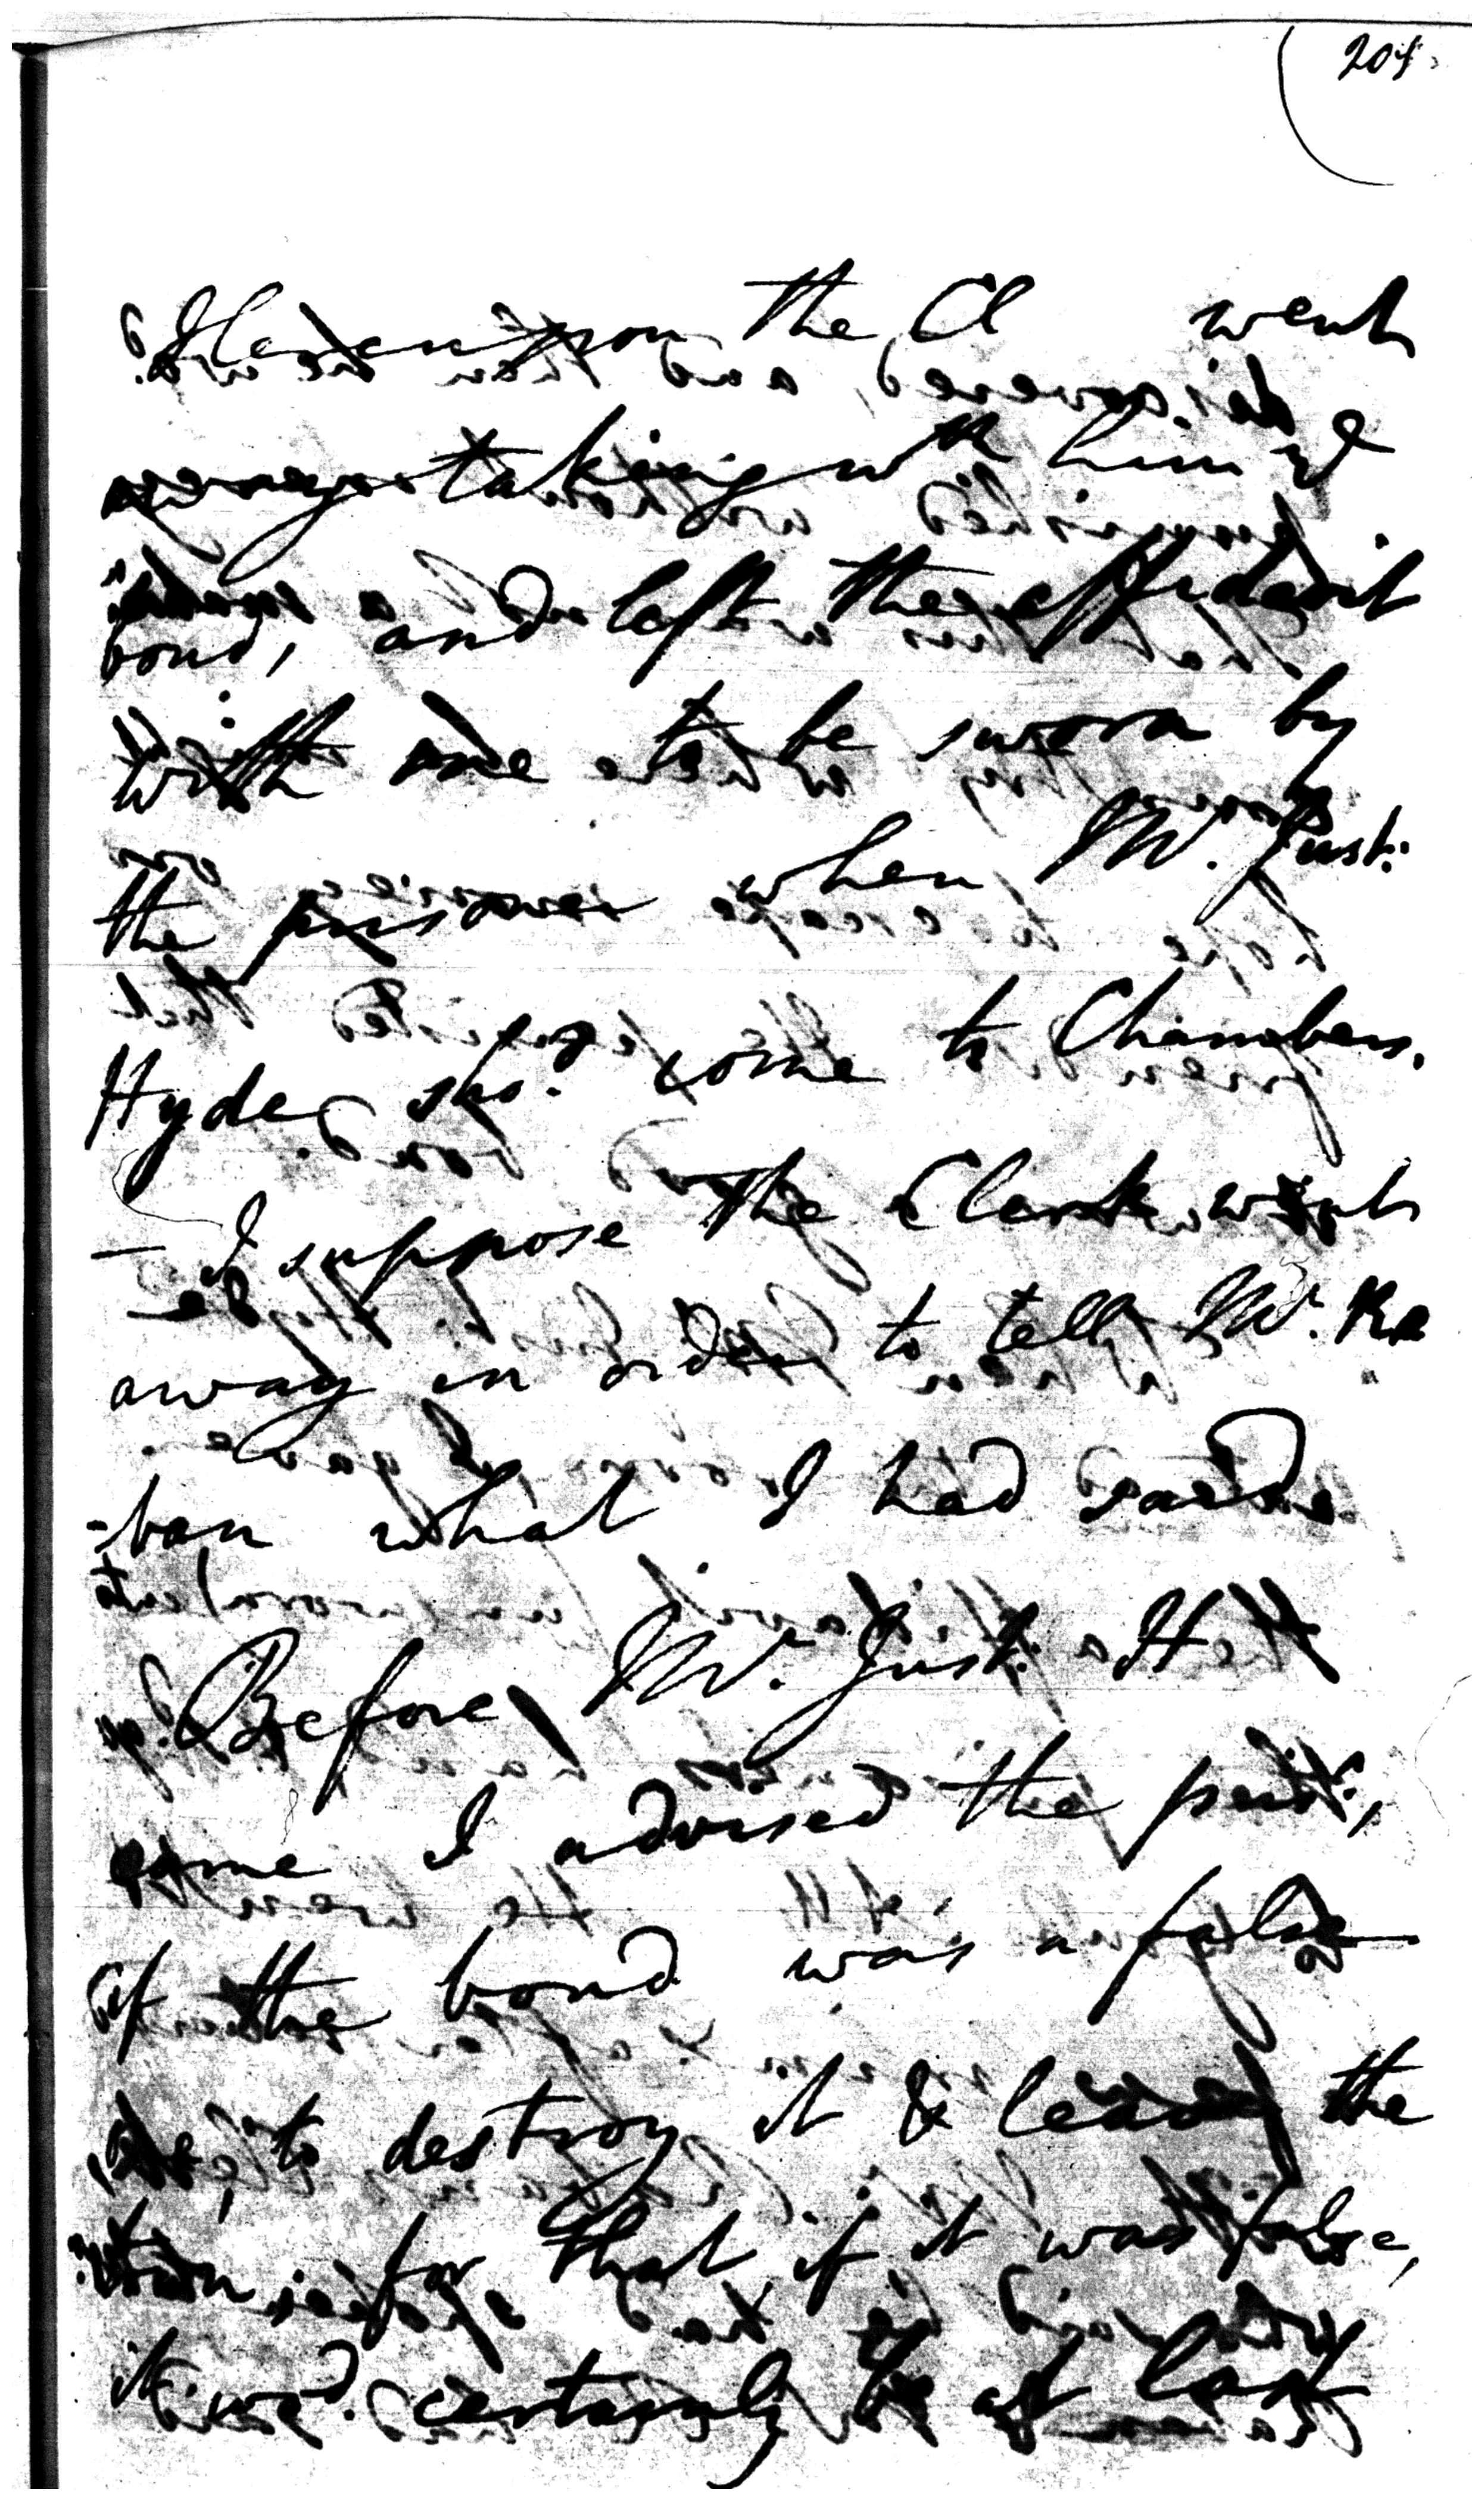 204
Hereupon the Cl went
away taking wth him ye
bond, and left the affidavit
with me to be sworn by
the prisoner when Mr. Just:
Hyde sho.d come to Chambers.
— I suppose the Clerk went
away in order to tell Mr. Ra
-ban what I had said
Before Mr. Just: H
came I advised the pris:,
if the bond was a false
to destroy it & leave the
for that if it was false,
it wo.d certainly be at last